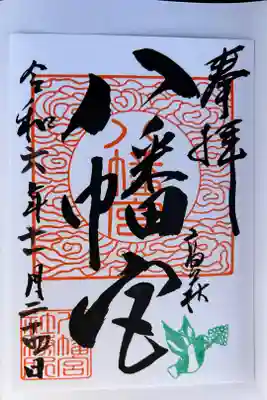 奉拝
八幡宮
八幡宮
令和六年十一月二十四日